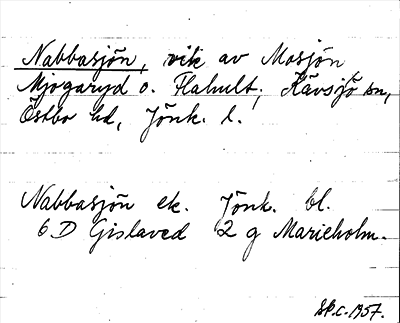 Nabbasjön, vik av Mosjön
Mjogaryd o. Flahult; Kävsjö sn,
Östbo hd, Jönk. l.
Nabbasjön ek. Jönk. bl.
6 D Gislaved 2 g Marieholm.
Sk.c. 1957.